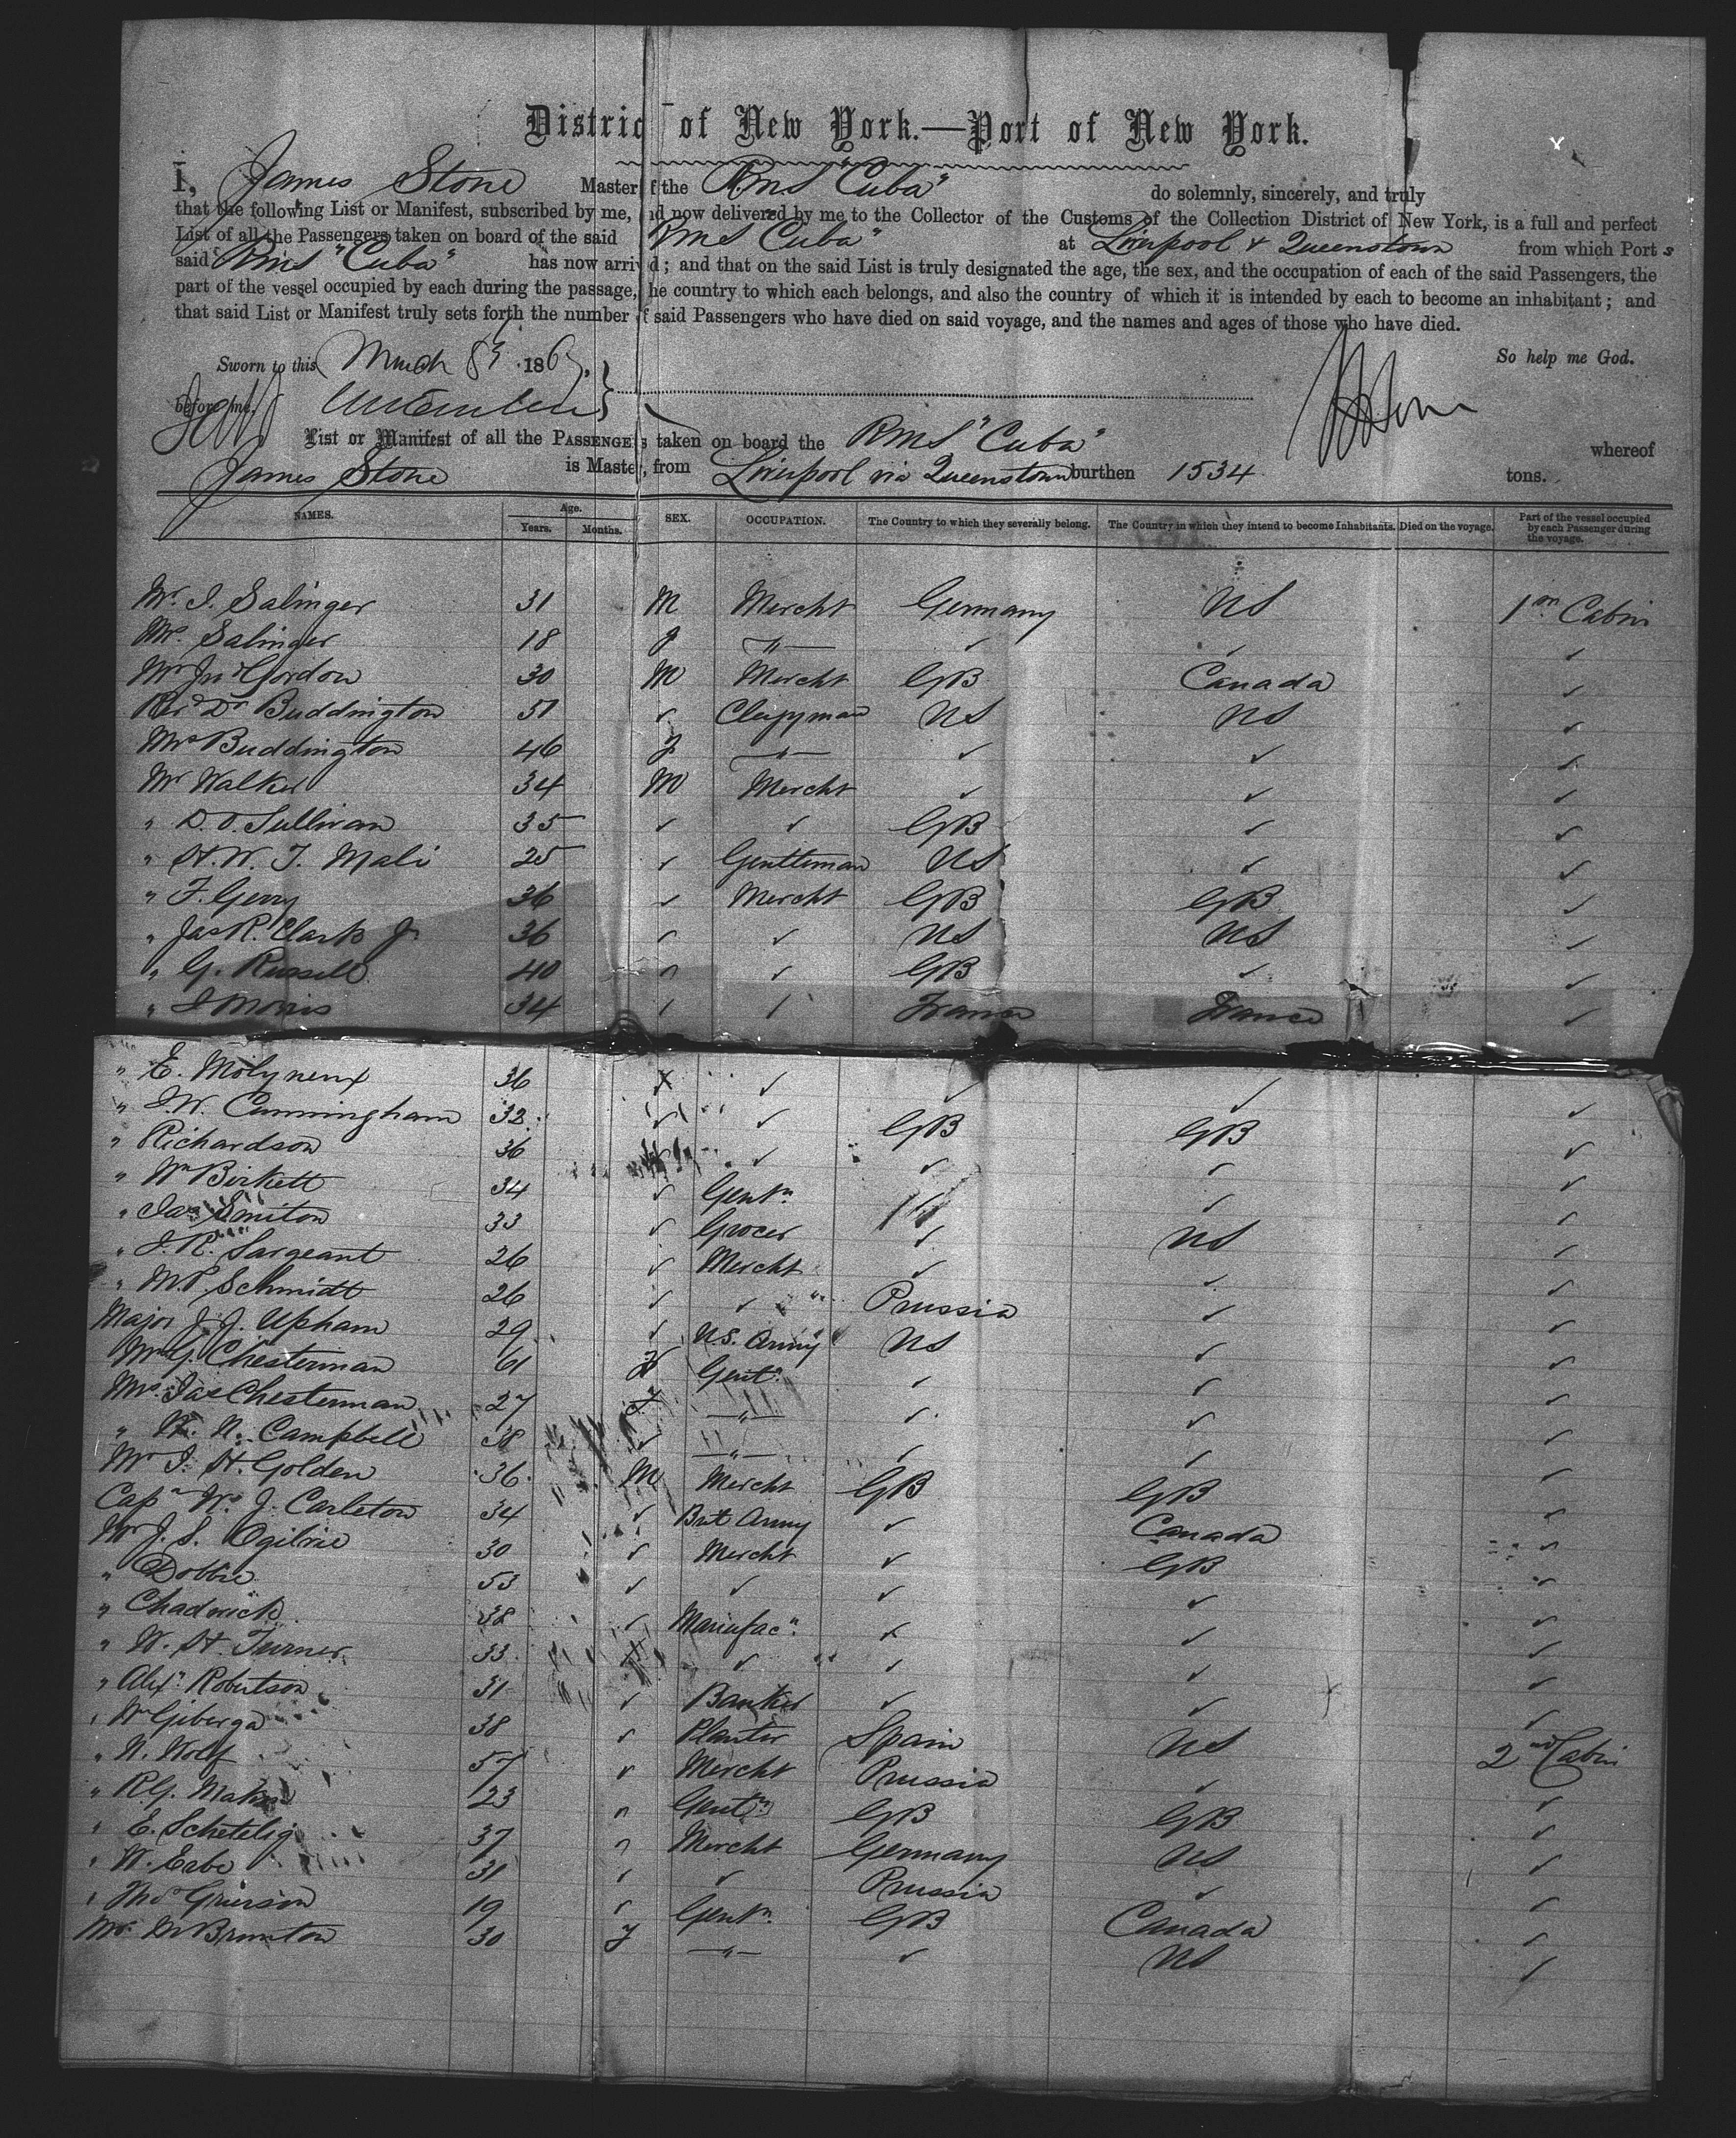 District of New York.—Port of New York.
I, James Stone Master of the RMS "Cuba" do solemnly, sincerely, and truly
that the following List or Manifest, subscribed by me, and now delivered by me to the Collector of the Customs of the Collection District of New York, is a full and perfect
List of all the Passengers taken on board of the said RMS "Cuba" at Liverpool & Queenstown from which Port s
said RMS "Cuba" has now arrived; and that on the said List is truly designated the age, the sex, and the occupation of each of the said Passengers, the
part of the vessel occupied by each during the passage, the country to which each belongs, and also the country of which it is intended by each to become an inhabitant; and
that said List or Manifest truly sets forth the number of said Passengers who have died on said voyage, and the names and ages of those who have died.
Sworn to this March 186 So help me God.
before me,
List or Manifest of all the PASSENGERS taken on board the RMS "Cuba" whereof
James Stone is Master, from Liverpool via Queenstown burthen 1534 tons.
NAMES. Age. Years. Months. SEX. OCCUPATION. The Country to which they severally belong. The Country in which they intend to become Inhabitants. Died on the voyage. Part of the vessel occupied by each Passenger during the voyage.
Mr. I. Salinger 31 M Mercht Germany US 1st Cabin
Mrs. Salinger 18 f —"— ✓ ✓ ✓
Mr Jno Gordon 30 M Mercht GB Canada ✓
Revd Dr Buddington 51 ✓ Clergyman US US ✓
Mrs Buddington 46 f —"— ✓ ✓ ✓
Mr Walker 34 M Mercht ✓ ✓ ✓
" D. O. Sullivan 35 ✓ ✓ GB ✓ ✓
" H. W. T. Mali 25 ✓ Gentleman US ✓ ✓
" F. Gerry 36 ✓ Mercht GB GB ✓
" Jas R. Clark Jr 36 ✓ ✓ US US ✓
" G. Russell 40 ✓ ✓ GB ✓ ✓
" I Morris 34 ✓ ✓ France France ✓
" E. Molyneux 36 ✓ ✓ ✓ ✓ ✓
" J. W. Cunningham 32 ✓ ✓ GB GB ✓
" Richardson 36 ✓ ✓ ✓ ✓ ✓
" Wm Birkett 34 ✓ Gentn ✓ ✓
" Jas Smiton 33 ✓ Grocer ✓ US ✓
" J. R. Sargeant 26 ✓ Mercht ✓ ✓ ✓
" M. P. Schmidt 26 ✓ ✓ Prussia ✓ ✓
Major J. J. Upham 29 ✓ U.S. Army US ✓ ✓
Mr G. Chesterman 61 Gentn ✓ ✓ ✓
Mrs. Jas Chesterman 27 f —"— ✓ ✓ ✓
" W. N. Campbell 38 ✓ —"— ✓ ✓ ✓
Mr I. H. Golden 36 M Mercht GB GB ✓
Capn W. J. Carleton 34 ✓ Brit Army ✓ Canada ✓
Mr J. S. Ogilvie 30 ✓ Mercht ✓ GB ✓
" Dobbie 53 ✓ ✓ ✓ ✓ ✓
" Chadwick 38 ✓ Manufacr ✓ ✓ ✓
" W. H. Turner 33 ✓ ✓ ✓ ✓ ✓
" Alexr Robertson 31 ✓ Banker ✓ ✓ ✓
" Wm Giberga 38 ✓ Planter Spain US 2nd Cabin
" N. Wolf 57 ✓ Mercht Prussia ✓ ✓
" R. G. 23 ✓ Gentn GB GB ✓
" E. Schetelig 37 ✓ Mercht Germany US ✓
" W. Erbe 31 ✓ ✓ Prussia ✓ ✓
" Thos Grierson 19 ✓ Gentn GB Canada ✓
Mrs. M Brunton 30 f —"— ✓ US ✓